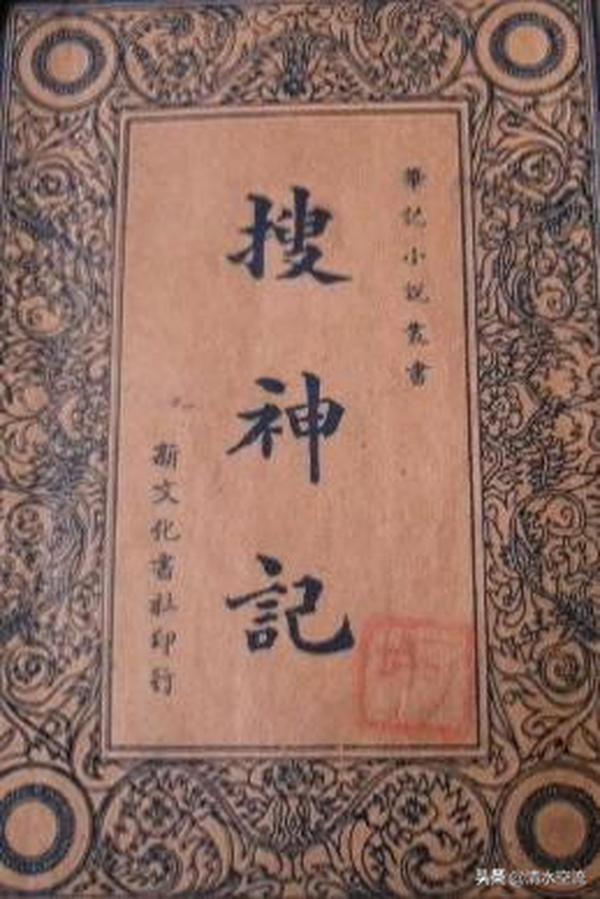 筆記小說叢書
搜神記
新文化書社印行
头条 @清水空流